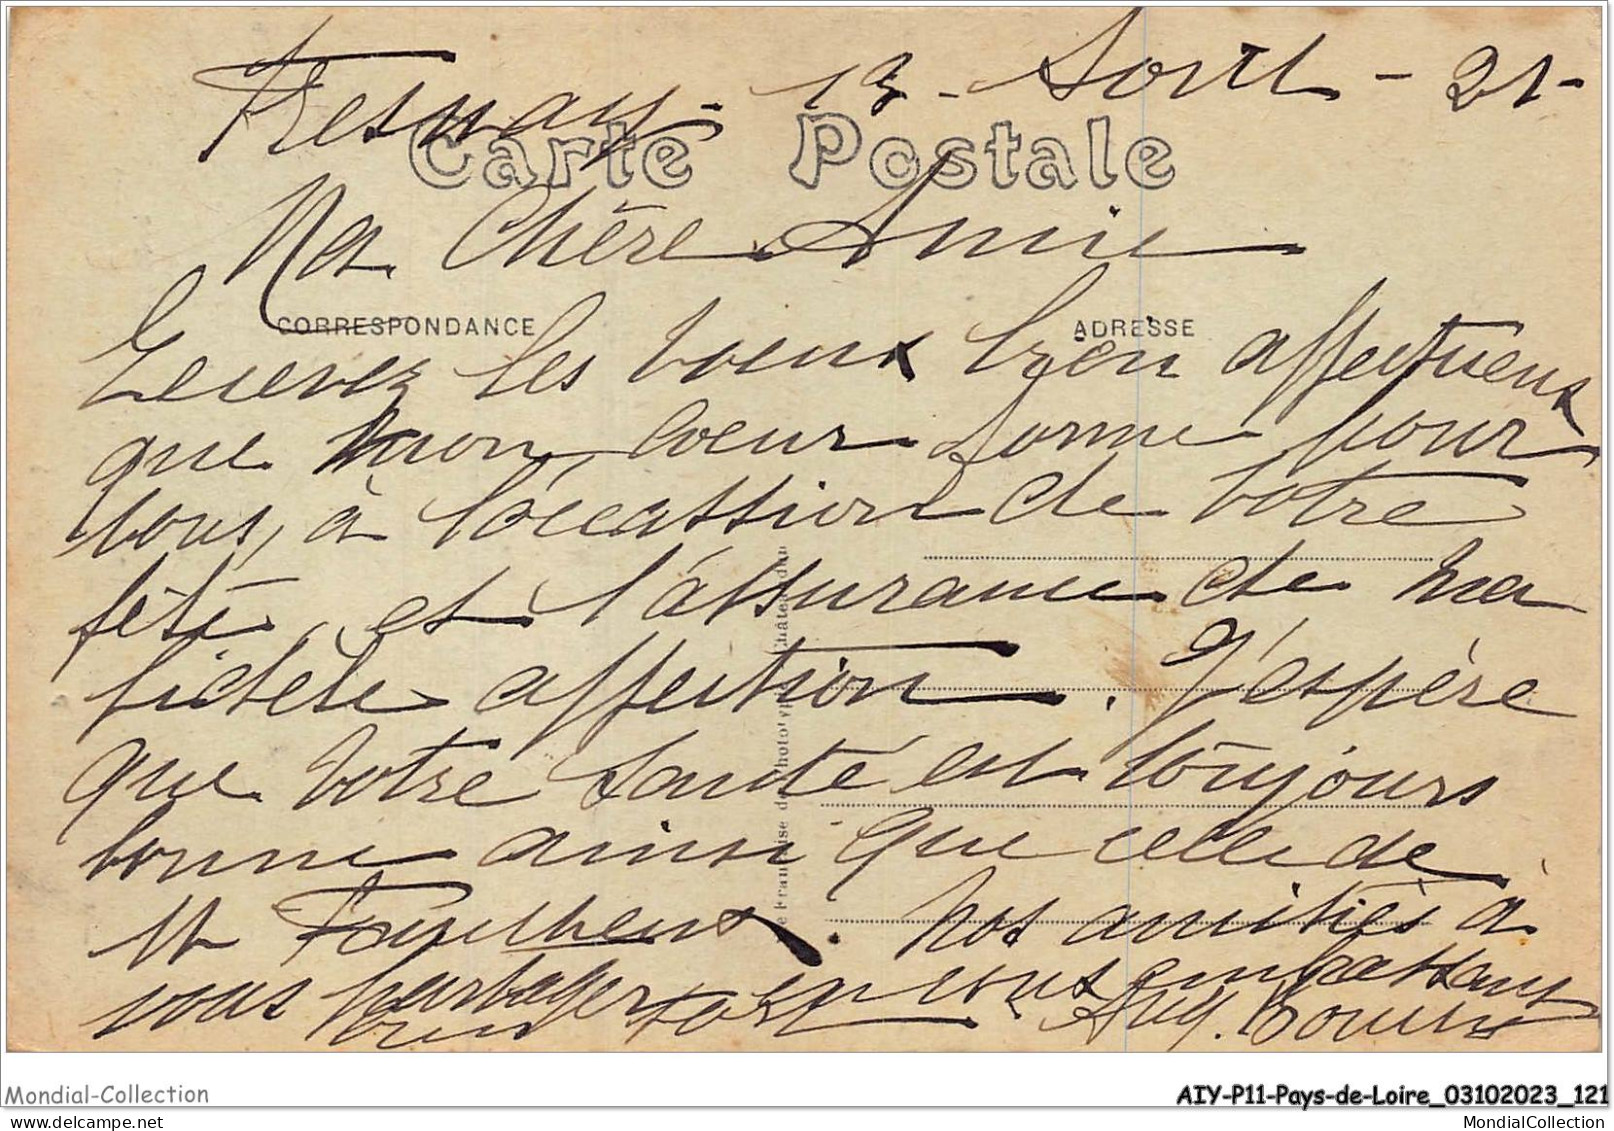 Fresnay - 13 - Août - 21 -
Carte Postale
Ma Chère Amie
CORRESPONDANCE
ADRESSE
Recevez les voeux bien affectueux
que mon coeur forme pour
vous, à l'occassion de votre
fête, et l'assurance de ma
fidèle affection. J'espère
que votre santé est toujours
bonne ainsi que celle de
Mr. Nos amitiés à
vous partager en vous embrassant
bien fort Aug.
Mondial-Collection
AIY-P11-Pays-de-Loire_03102023_121
MondialCollection